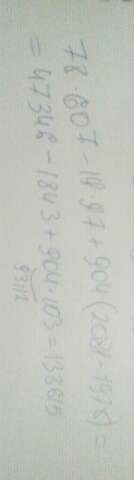 78·607-19·97+904(2081-1978)=
=47346-1843+904·103=138615
93112